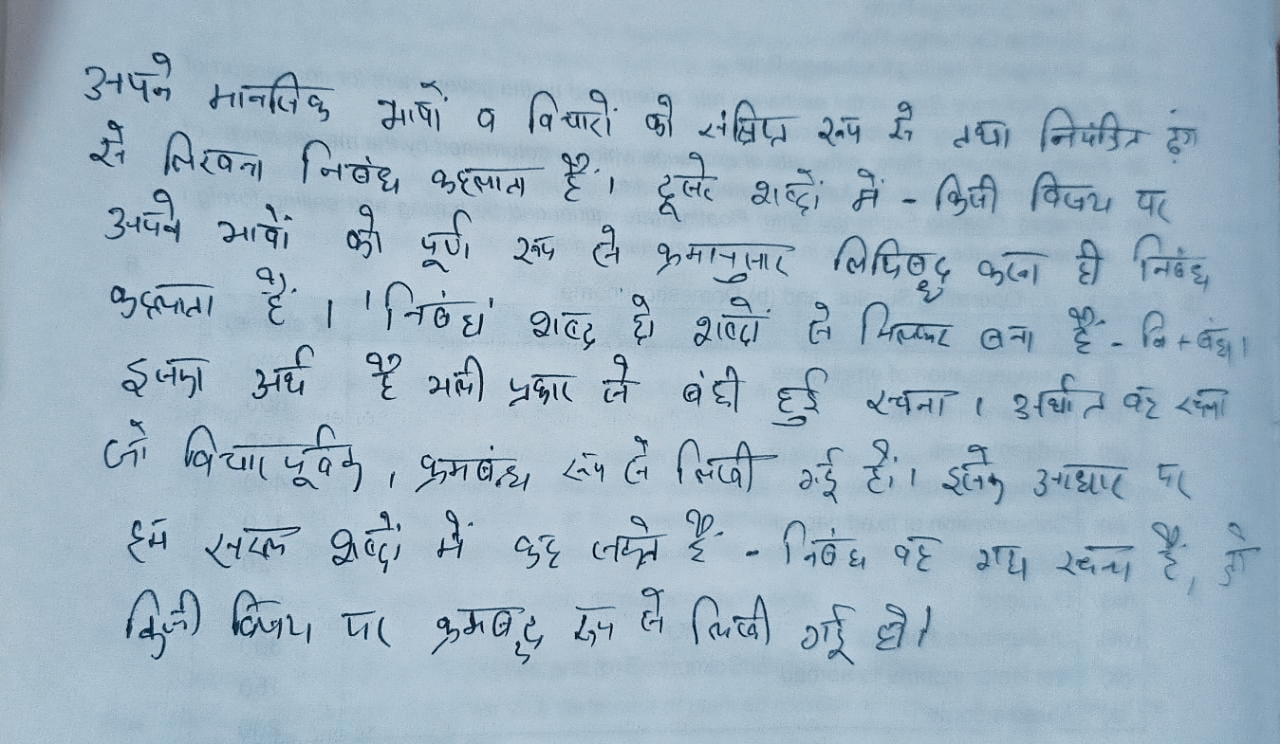 अपने मानसिक भावों व विचारों को संक्षिप्त रूप से तथा नियंत्रित ढंग
से लिखना निबंध कहलाता है। दूसरे शब्दों में - किसी विषय पर
अपने भावों को पूर्ण रूप से क्रमानुसार लिपिबद्ध करना ही निबंध
कहलाता है। 'निबंध' शब्द दो शब्दों से मिलकर बना है - नि + बंध।
इसका अर्थ है भली प्रकार से बंधी हुई रचना। अर्थात वह रचना
जो विचारपूर्वक, क्रमबंध्द रूप से लिखी गई है। इसके आधार पर
हम सरल शब्दों में कह सकते हैं - निबंध वह गद्य रचना है, जो
किसी विषय पर क्रमबद्ध रूप से लिखी गई हो।